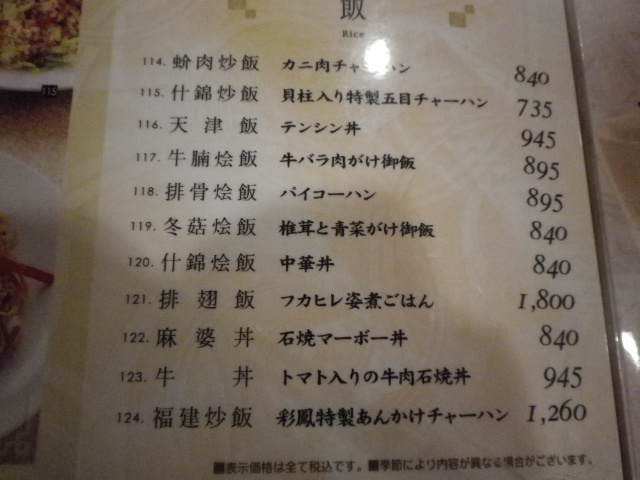 飯
Rice
114. 蚧肉炒飯 カニ肉チャーハン 840
115. 什錦炒飯 貝柱入り特製五目チャーハン 735
116. 天津飯 テンシン丼 945
117. 牛腩烩飯 牛バラ肉がけ御飯 895
118. 排骨烩飯 パイコーハン 895
119. 冬菇烩飯 椎茸と青菜がけ御飯 840
120. 什錦烩飯 中華丼 840
121. 排翅飯 フカヒレ姿煮ごはん 1,800
122. 麻婆丼 石焼マーボー丼 840
123. 牛丼 トマト入りの牛肉石焼丼 945
124. 福建炒飯 彩鳳特製あんかけチャーハン 1,260
■表示価格は全て税込です。■季節により内容が異なる場合がございます。
115